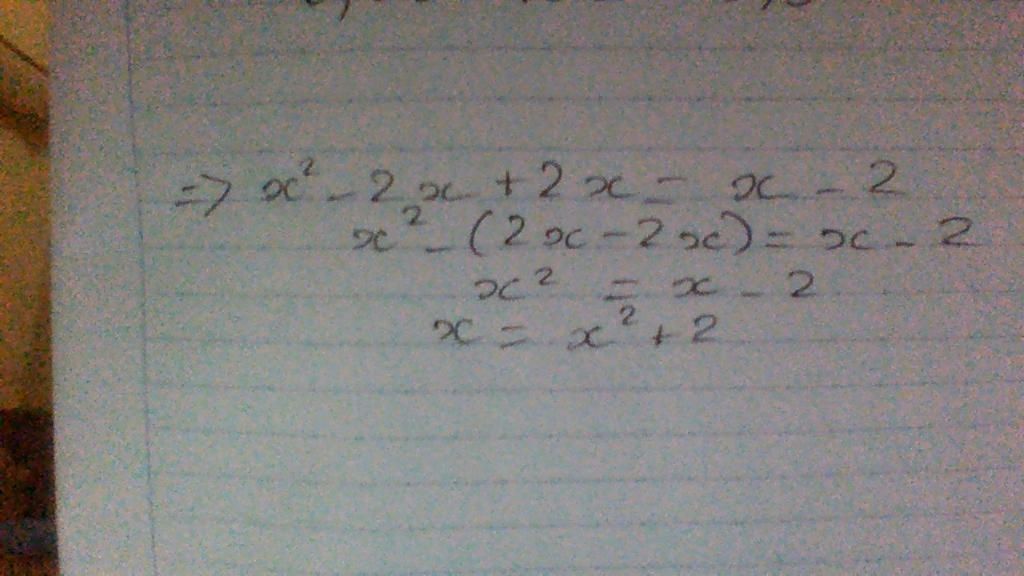 => x² - 2x + 2x = x - 2
x² - (2x - 2x) = x - 2
x² = x - 2
x = x² + 2